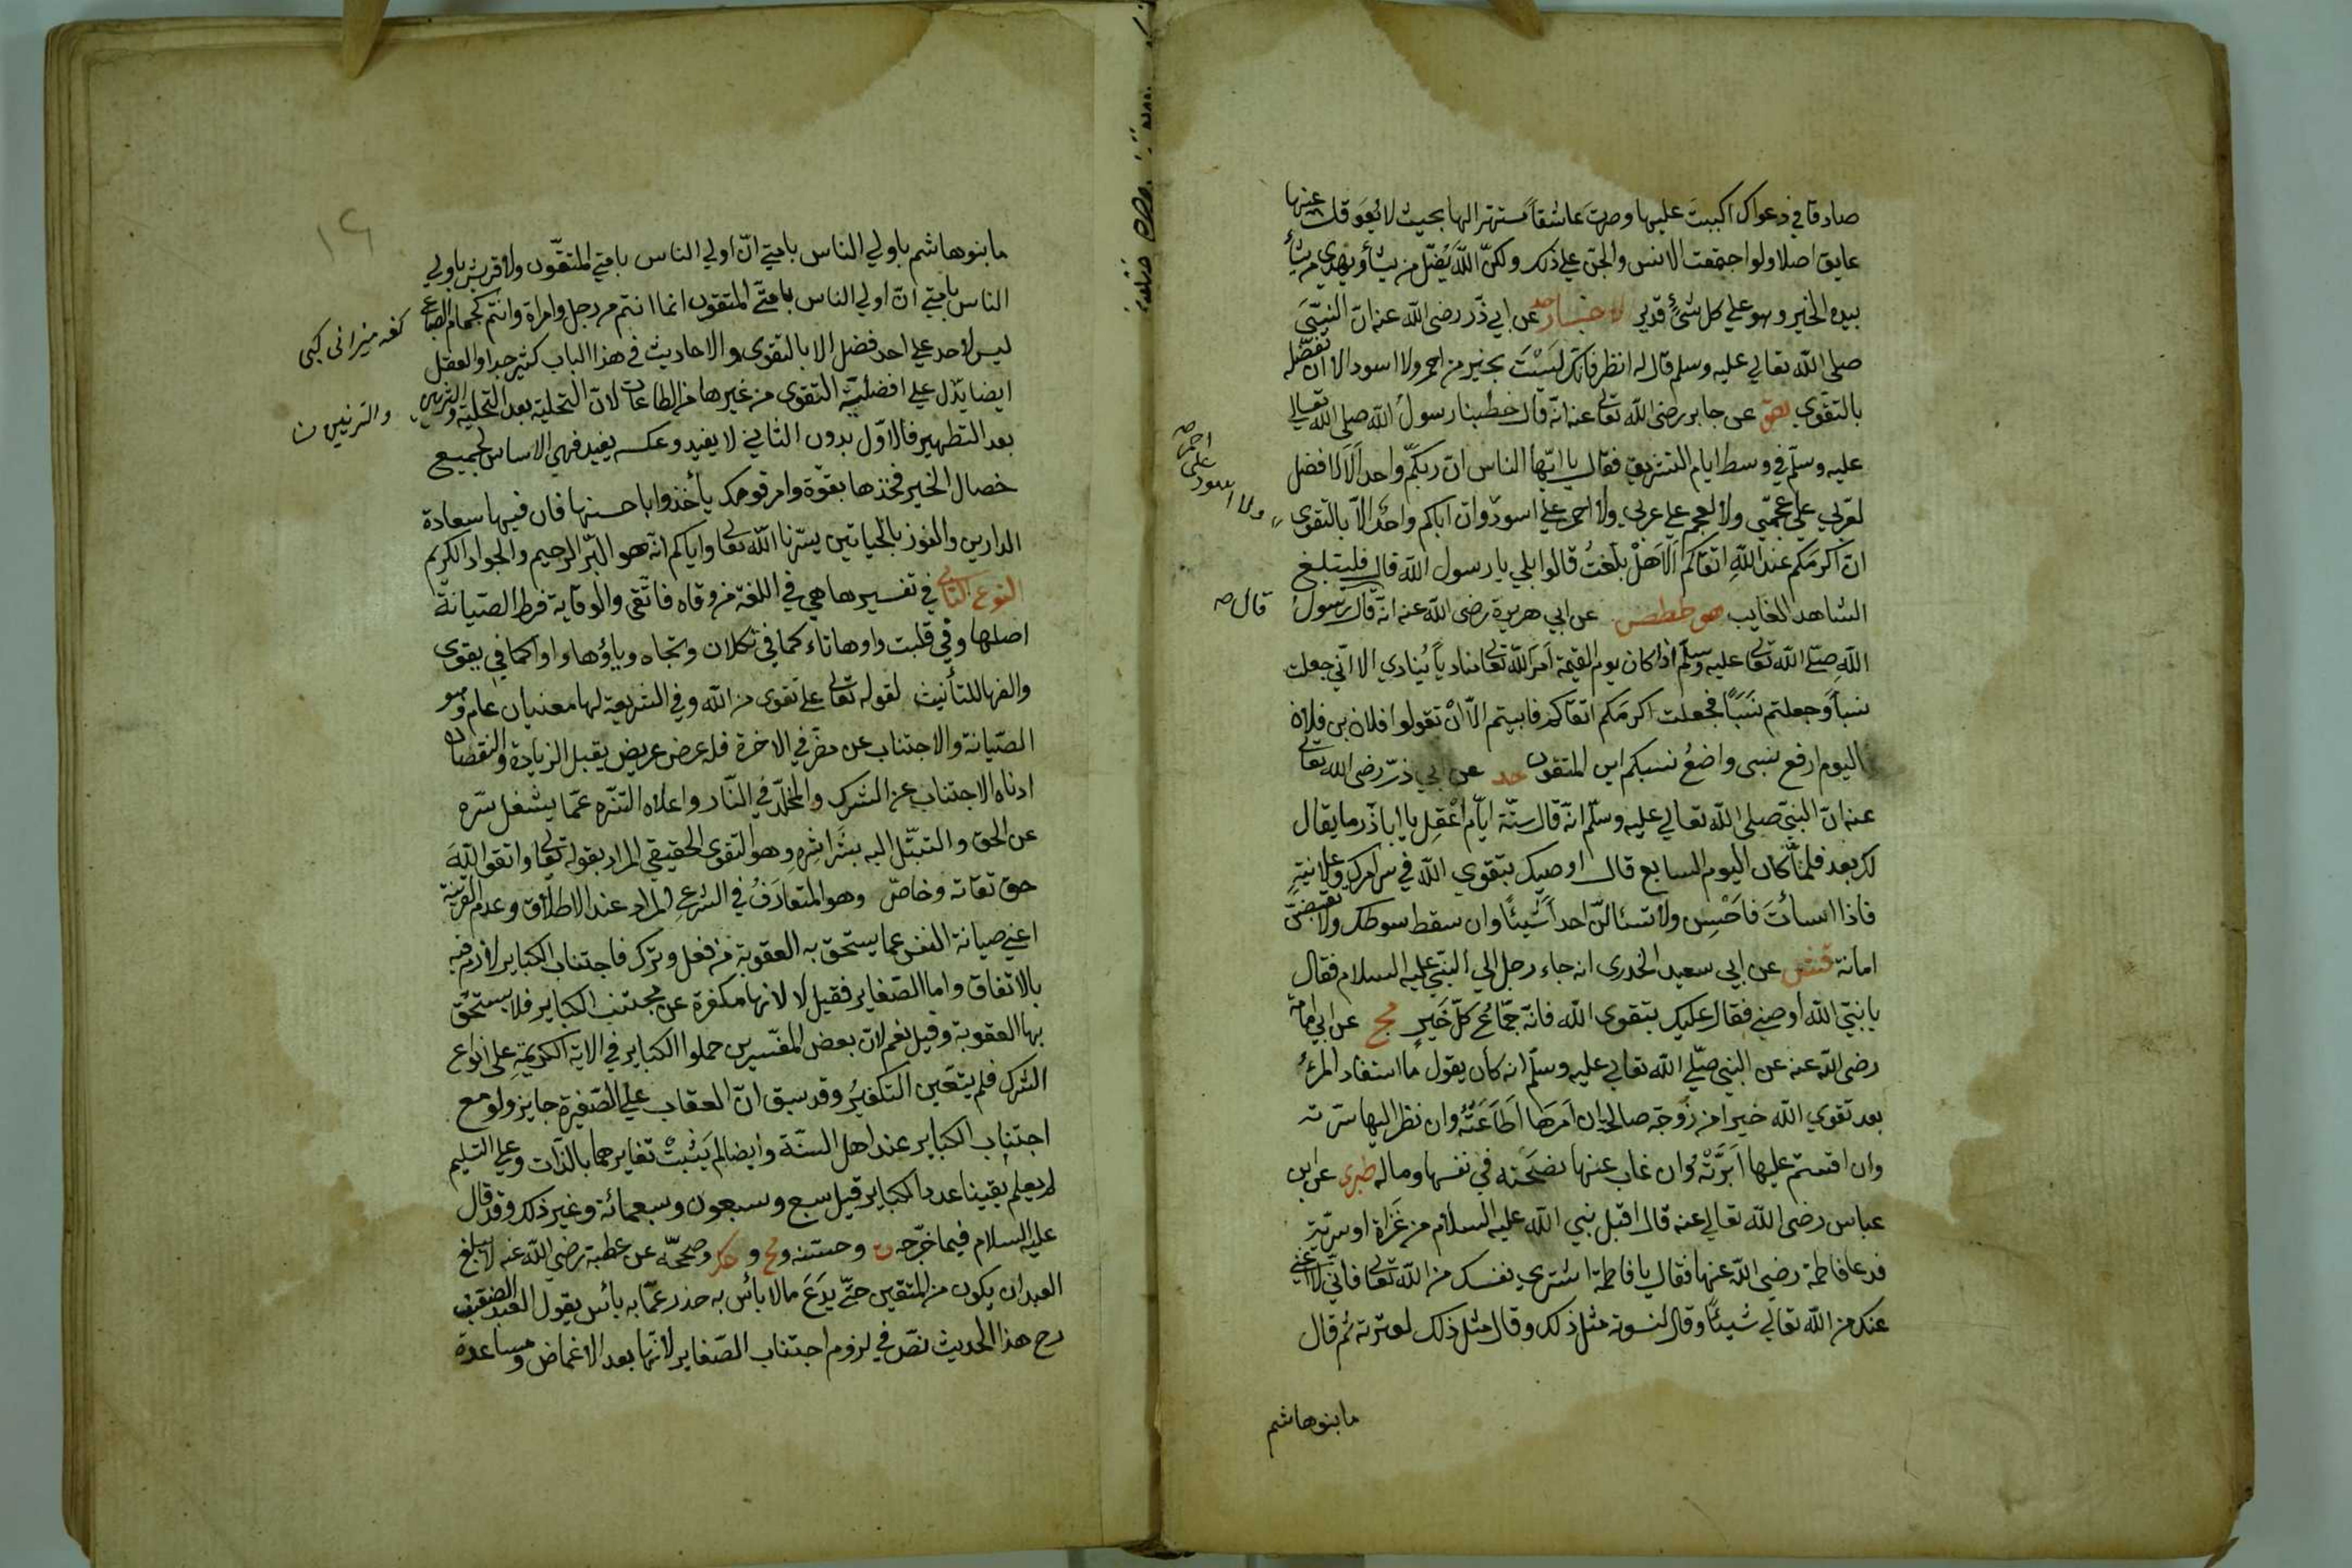 صادقا في دعواك اكببت عليها وصرت عاشقاً مستهترا لها بحيث لا يعوقك عنها
عايق اصلا ولو اجتمعت الانس والجن علي ذلك ولكنّ اللّه يُضلّ من يشأ ويهدي من يشأ
بيده الخير وهو علي كل شئٍ قدير الاخبار حد عن ابي ذّر رضى اللّه عنه انّ النبيّ
صلى اللّه تعالي عليه وسلم قال له انظر فانّك لَسْتَ بخير من احمر ولا اسود الا ان تفضّله
بالتقوي هق عن جابر رضى اللّه تعالى عنه انّه قال خطبنا رسول اللّه صلى اللّه تعالى
عليه وسلّم في وسط ايام التشريق فقال يا ايّها الناس انّ ربكمّ واحد اَلاَ لا افضل
لعربي علي عجميّ ولا لعجم علي عربي ولا احمر علي اسود وان اباكم واحد الاّ بالتقوى
احمر على
اسود
ولا
انّ اكرمَكم عند اللّهِ اتقاكم اَلاَ هلْ بلّغتُ قالوا بلي يا رسول اللّه قال فليبلغ
الشاهد الغايب هق طط طص عن ابي هريرة رضى اللّه عنه انّه قال رسولُ
قال صح
اللّهِ صلّى اللّه تعالى عليه وسلّم اذا كان يوم القيمة اَمَر اللّه تعالى مناديا يُنادي الا انّي جعلت
نسباً وجعلتم نَسَبًا فجعلت اكرمَكم اتقاكم فابيتم الاّ انْ تقولوا فلان بن فلان
اليوم ارفع نسبى واضعُ نسبكم اين المتقون حد عن ابي ذرّ رضى اللّه تعالى
عنه انّ النبيّ صلى اللّه تعالي عليه وسلّم انه قال ستّة ايّام اعْقِل يا ابا ذر ما يقال
لك بعد فلمّا كان اليوم السابع قال اوصيك بتقوي اللّه في سر امرك وعلانيتهِ
فاذا اسأتَ فاَحْسِن ولا تسئالنّ احداً شيئًا وان سقط سوطك ولا تقبضنّ
امانة عن ابي سعيد الخدرى انه جاء رجل الي النبي عليه السلام فقال
يا نبيّ اللّه اوصنى فقال عليك بتقوى اللّه فانّه جمّاعُ كلّ خَيرٍ مج عن ابي امامة
رضى اللّه عنه عن النبي صلّي اللّه تعالي عليه وسلّم انه كان يقول ما استفاد المرءُ
بعد تقوي اللّه خيرا من زَوجة صالحة ان اَمرَها اَطَاعَتْهُ وان نظر اليها سرّته
وان اقسم عليها اَبرَّتْه وان غاب عنها نصَحَته في نفسها وماله طبرى عن ابن
عباس رضى اللّه تعالي عنه قال اقبل نبي اللّه عليه السلام من غَزَاة او سريّةٍ
فدعا فاطمة رضى اللّه عنها فقال يا فاطمة اشتري نفسك من اللّه تعالى فانّي لا اغني
عنك من اللّه تعالي شيئًا وقال لنسوته مثل ذلك وقال مثل ذلك لعترته ثم قال
ما بنو هاشم
١٦
ما بنو هاشم باولي الناس بامتي انّ اولي الناس بامتي المتقّون ولا قريش باولي
الناس بامتي انّ اولي الناس بامتَي المتقون انما انتم من رجل وامراة وانتم كجمام الصّاع
ليس لاحد علي احد فضل الا بالتقوى والاحاديث في هذا الباب كثير جدا والعقل
ايضا يدّل علي افضليّة التقوى من غيرها من الطاعات لانّ التحلية بعد التخلية والتزيين
والتزيين ن
بعد التطهير فالاوّل بدون الثاني لا يفيد وعكسه يفيد فهي الاساس لجميع
خصال الخير فخذها بقوّة وامر قومك يأخذوا باحسنها فان فيها سعادة
الدارين والفوز بالحياتين يسّرنا اللّه تعالى واياكم انّه هو البّر الرحيم والجواد الكريم
النوع الثاني في تفسيرها هي في اللغة من وقاه فاتّقى والوقاية فرط الصّيانة
اصلها وقي قلبت واوها تاء كما في تكلان وتجاه وياؤها واوا كما في بقوى
والفها للتأنيث لقوله تعالى علي تقوى من اللّه وفي الشريعة لها معنيان عام وهو
الصّيانة والاجتناب عن مضّر في الاخرة فله عرض عريض يقبل الزيادة والنقصان
ادناه الاجتناب عن الشرك والمخلّد في النّار واعلاه التنّزه عمّا يشغل سرّه
عن الحق والتبتّل اليه بشَراشِره وهو التقوى الحقيقي المراد بقوله تعالى واتقوا اللّهَ
حق تقاته وخاصّ وهو المتعارَفُ في الشرع المراد عند الاطلاق وعدم القرينة
اعني صيانة النفس عما يستحق به العقوبة من فعل وترك فاجتناب الكباير لازم فيه
بالاتفاق واما الصّغاير فقيل لا لانها مكفرة عن مجتنب الكباير فلا يستحّق
بها العقوبة وقيل نعم لانّ بعض المفسّرين حملوا الكباير في الاية الكريمةِ على انواع
الشرك فلم يتعّين التكفيُر وقد سبق انّ العقاب علي الصّغيرة جايز ولو مع
اجتناب الكباير عند اهل السنّة وايضا لم يَثبُتْ تغايرهما بالذّات وعلي التسليم
لم يعلم يقينا عدد الكباير قيل سبع وسبعون وسبعمائة وغير ذلك وقد قال
عليه السلام فيما خرّجه ت وحسّنه و مج و حك وصححّه عن عطية رضى اللّه عنه لا يبلغ
العبد ان يكون من المتقين حتّي يَدَعَ ما لا بأس به حذر عمّا به بأس يقول العبد الضعيف
رح هذا الحديث نصّ في لزوم اجتناب الصّغاير لانّها بعد الاغماض ومساعدة